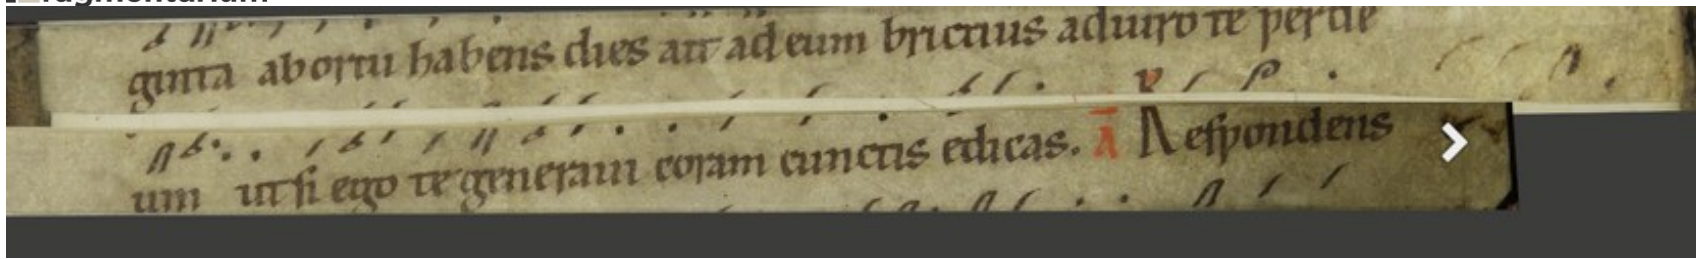 ginta ab ortu habens dies ait ad eum brictius adiuro te per dī
um ut si ego te generaui coram cunctis edicas. A Respondens